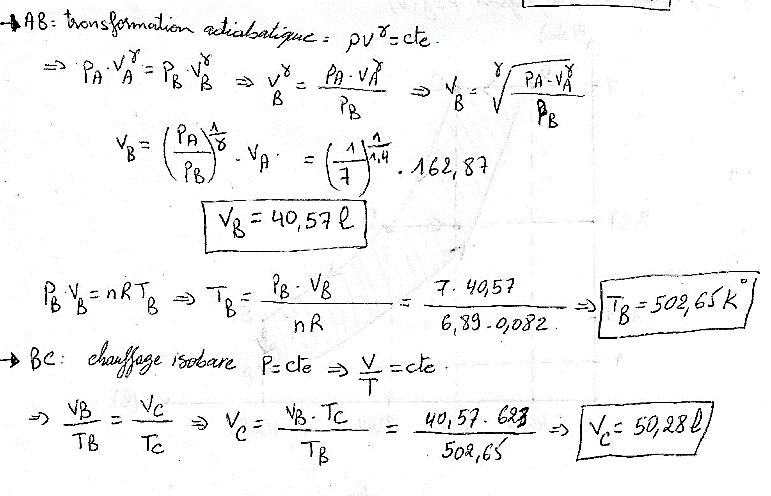 → AB: transformation adiabatique: PV^γ = cte.
⇒ P_A · V_A^γ = P_B · V_B^γ ⇒ V_B^γ = (P_A · V_A^γ) / P_B ⇒ V_B = γ√((P_A · V_A^γ) / P_B)
V_B = (P_A / P_B)^(1/γ) · V_A · = (1/7)^(1/1,4) · 162,87
V_B = 40,57 l
P_B · V_B = nRT_B ⇒ T_B = (P_B · V_B) / nR = (7 · 40,57) / (6,89 · 0,082) ⇒ T_B = 502,65 K°
→ BC: chauffage isobare P = cte ⇒ V/T = cte.
⇒ V_B / T_B = V_C / T_C ⇒ V_C = (V_B · T_C) / T_B = (40,57 · 623) / 502,65 ⇒ V_C = 50,28 l